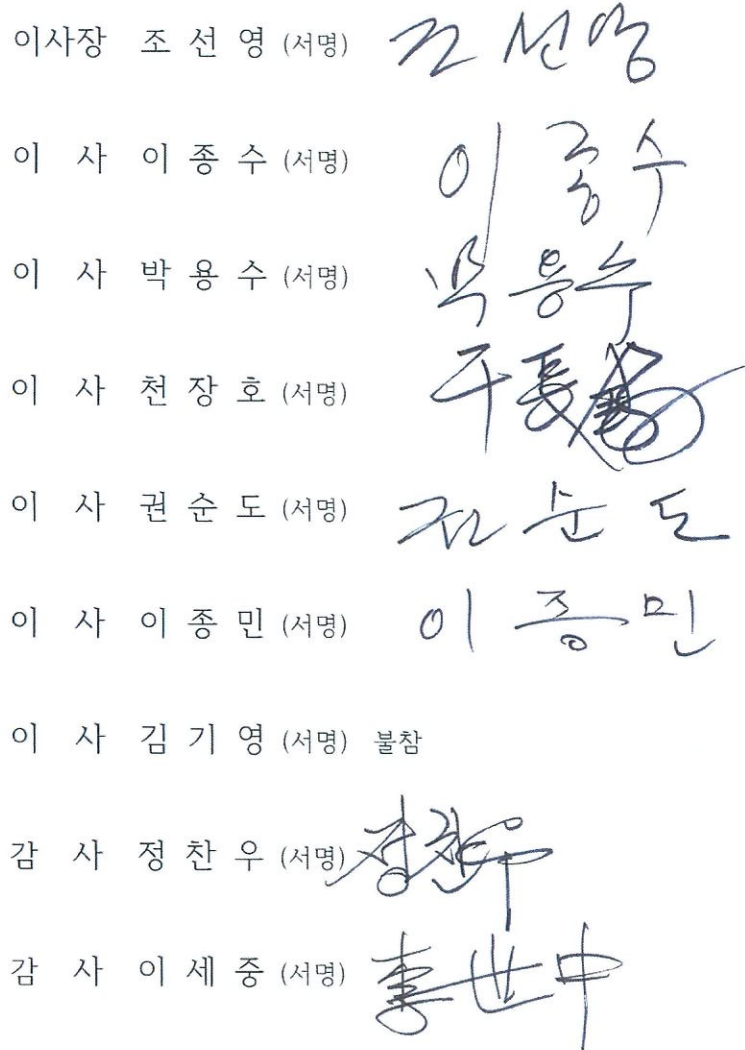 이사장 조 선 영 (서명) 조 선 영
이 사 이 종 수 (서명) 이 종 수
이 사 박 용 수 (서명) 박 용 수
이 사 천 장 호 (서명)
이 사 권 순 도 (서명) 권 순 도
이 사 이 종 민 (서명) 이 종 민
이 사 김 기 영 (서명) 불참
감 사 정 찬 우 (서명) 정찬우
감 사 이 세 중 (서명) 李世中